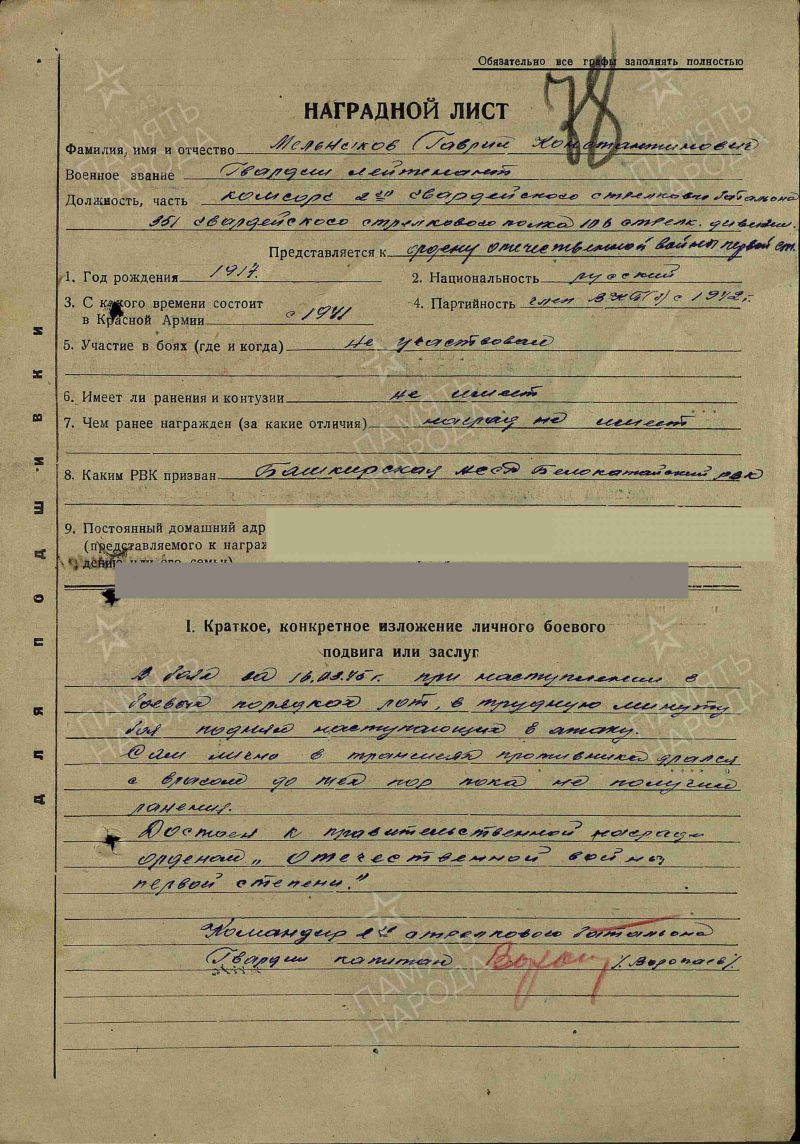 Обязательно все графы заполнять полностью
78
НАГРАДНОЙ ЛИСТ
Фамилия, имя и отчество Мельников Гаврил Константинович
Военное звание Гвардии лейтенант
Должность, часть комсорг 2го Гвардейского стрелкового батальона
351 гвардейского стрелкового полка 106 стрелк. дивизии.
Представляется к ордену отечественной войны первой ст.
1. Год рождения 1917.
2. Национальность русский
3. С какого времени состоит
в Красной Армии с 1941
4. Партийность член ВКП(б) с 1942г.
5. Участие в боях (где и когда) не участвовал
6. Имеет ли ранения и контузии не имеет
7. Чем ранее награжден (за какие отличия) наград не имеет
8. Каким РВК призван Башкирская АССР Белокатайский рвк
9. Постоянный домашний адр
(представляемого к награж
дению или его семьи)
I. Краткое, конкретное изложение личного боевого
подвига или заслуг
В боях за 16.03.45г. при наступлении в
боевых порядках рот, в трудную минуту
боя поднял наступающих в атаку.
Сам лично в траншеях противника дрался
с врагом до тех пор пока не получил
ранения.
Достоен к правительственной награды
орденом „Отечественной войны
первой степени."
Командир 2го стрелкового батальона
Гвардии капитан /Воропаев/
ДЛЯ ПОДШИВКИ
ПАМЯТЬ НАРОДА